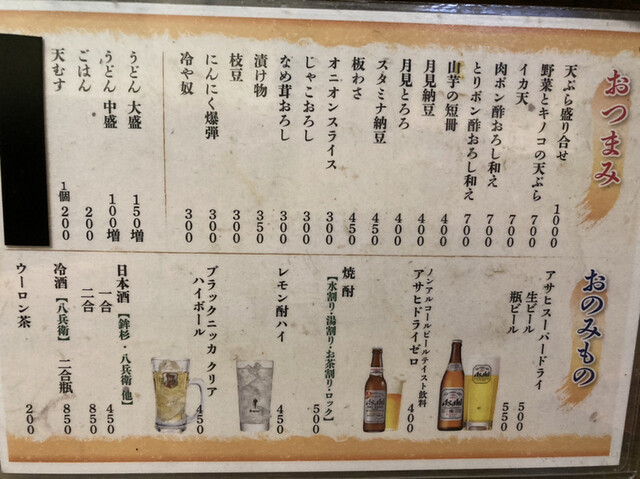 おつまみ
天ぷら盛り合せ 1000
野菜とキノコの天ぷら 700
イカ天 700
肉ポン酢おろし和え 700
とりポン酢おろし和え 700
山芋の短冊 400
月見納豆 400
月見とろろ 400
スタミナ納豆 450
板わさ 450
オニオンスライス 300
じゃこおろし 300
なめ茸おろし 300
漬け物 350
枝豆 300
にんにく爆弾 300
冷や奴 300
うどん 大盛 150増
うどん 中盛 100増
ごはん 200
天むす 1個 200
おのみもの
アサヒスーパードライ
生ビール 500
瓶ビール 550
ノンアルコールビールテイスト飲料
アサヒドライゼロ 400
焼酎
【水割り・湯割り・お茶割り・ロック】 500
レモン酎ハイ 450
ブラックニッカ クリア
ハイボール 450
日本酒【鉾杉・八兵衛他】
一合 450
二合 850
冷酒【八兵衛】 二合瓶 850
ウーロン茶 200